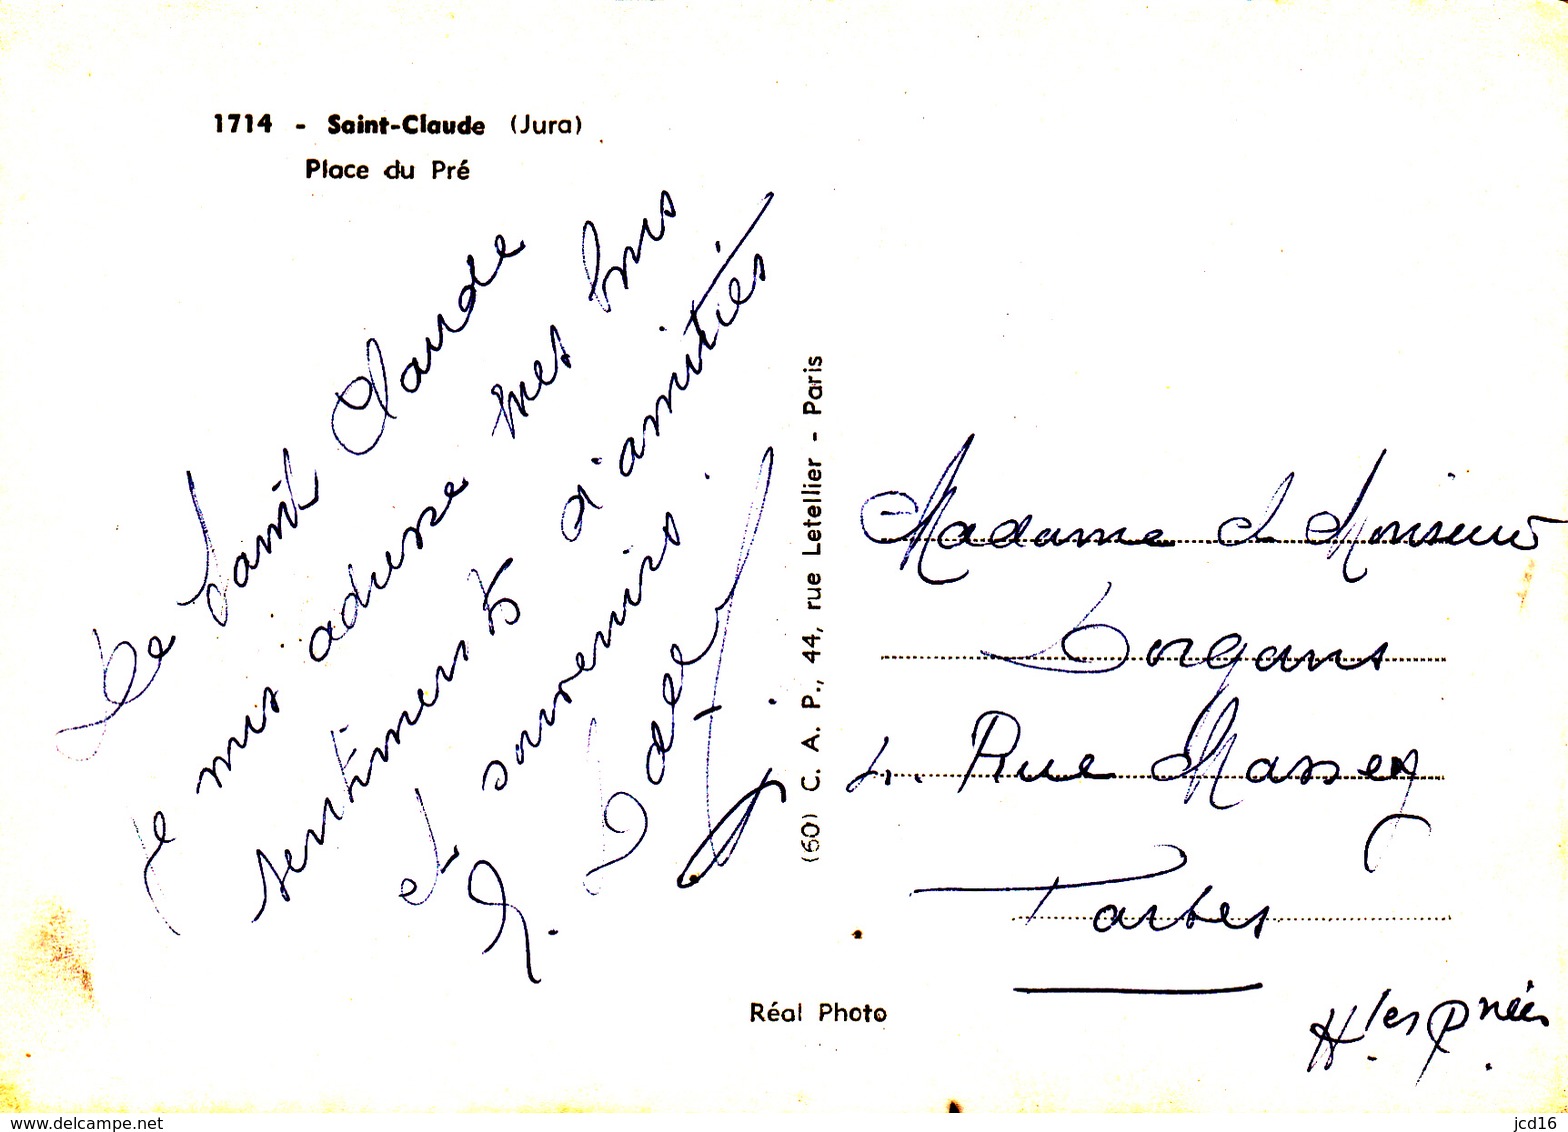 1714 - Saint-Claude (Jura)
Place du Pré
De Saint Claude
je vous adresse mes bons
sentiments d'amitiés
et souvenirs.
(60) C. A. P., 44, rue Letellier - Paris
Madame et Monsieur
Dorgans
Rue Massey
Tarbes
Htes Pnées
Réal Photo
www.delcampe.net
jcd16